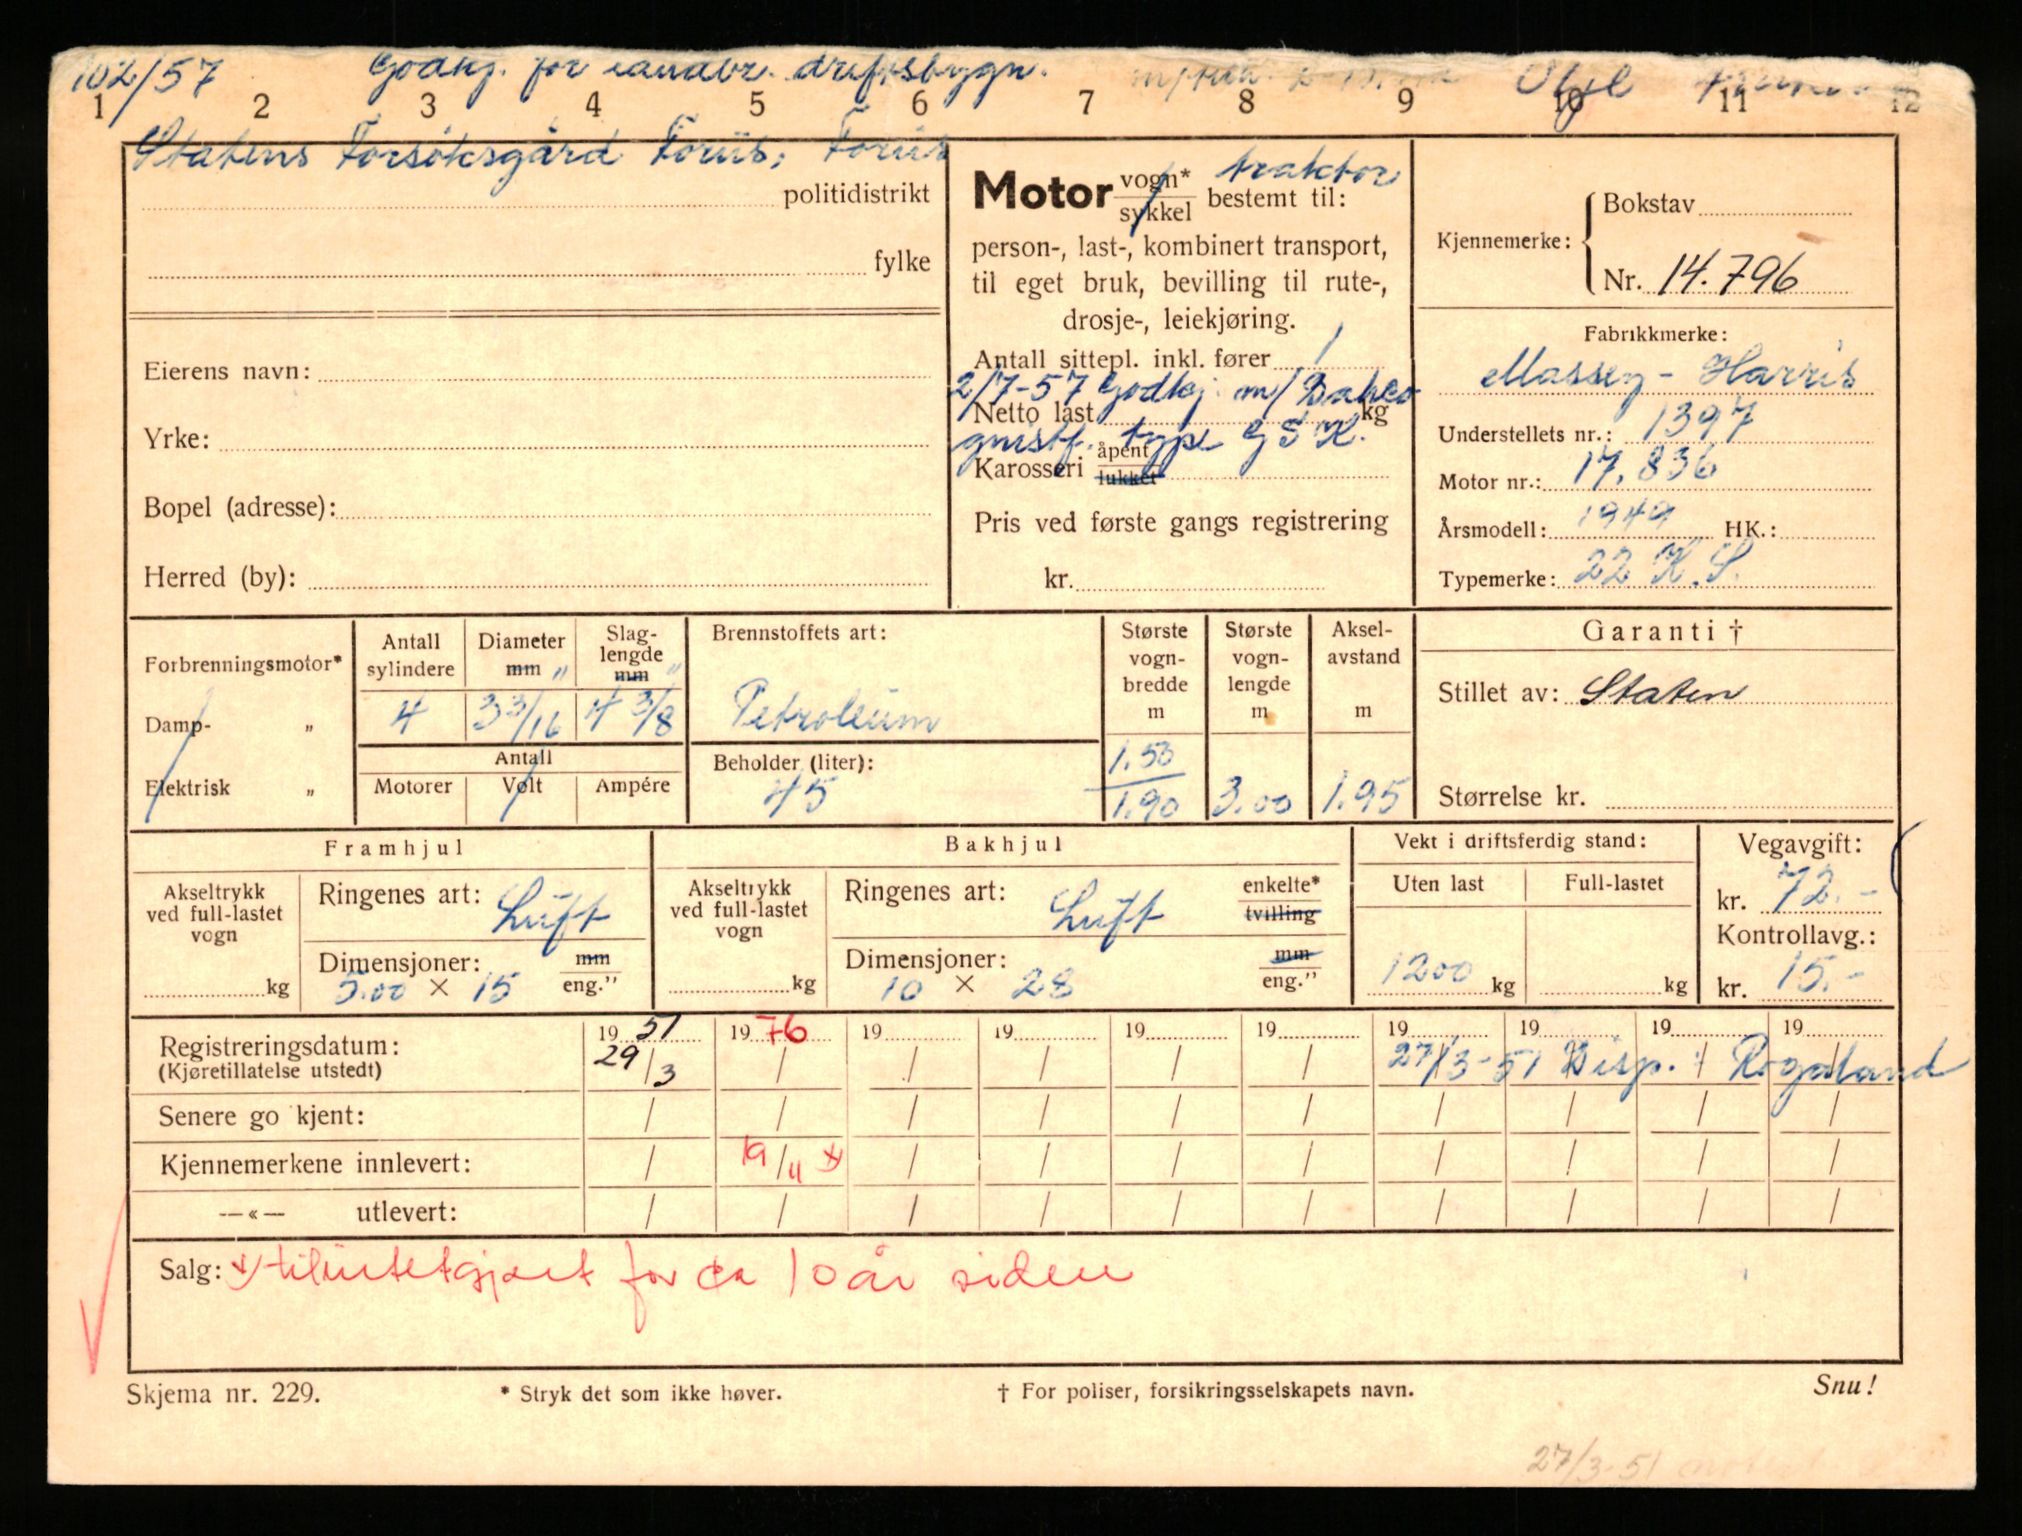 102/57 Godkj. for landbr. driftsbygn.
1 2 3 4 5 6 7 8 9 10 11 12
Statens Forsöksgård Forus, Forus
politidistrikt
fylke
Eierens navn:
Yrke:
Bopel (adresse):
Herred (by):
traktor
Motor vogn* / sykkel bestemt til:
person-, last-, kombinert transport,
til eget bruk, bevilling til rute-,
drosje-, leiekjøring.
Antall sittepl. inkl. fører 1
2/7-57 Godkj. m/ Bahco
Netto last kg
gnistf. type GSK.
Karosseri åpent / lukket
Pris ved første gangs registrering
kr.
Kjennemerke: Bokstav
Nr. 14.796
Fabrikkmerke:
Massey-Harris
Understellets nr.: 1397
Motor nr.: 17.836
Årsmodell: 1949 HK.:
Typemerke: 22 K.S.
Forbrenningsmotor*
Damp- „
Elektrisk „
Antall sylindere Diameter mm " Slaglengde mm "
4 3 3/16 4 3/8
Antall
Motorer Volt Ampére
Brennstoffets art:
Petroleum
Beholder (liter):
45
Største vogn-bredde m
1.50
1.90
Største vogn-lengde m
3.00
Aksel-avstand m
1.95
Garanti †
Stillet av: Staten
Størrelse kr.
Framhjul
Akseltrykk ved full-lastet vogn
kg
Ringenes art: Luft
Dimensjoner: mm
5.00 × 15 eng."
Bakhjul
Akseltrykk ved full-lastet vogn
kg
Ringenes art: Luft enkelte* / tvilling
Dimensjoner: mm
10 × 28 eng."
Vekt i driftsferdig stand:
Uten last Full-lastet
1200 kg kg
Vegavgift:
kr. 72.-
Kontrollavg.:
kr. 15.-
19 51 19 76 19 19 19 19 19 19 19 19
Registreringsdatum: 29/3 / / / / / 27/3-51 Disp. : Rogaland
(Kjøretillatelse utstedt)
Senere go kjent: / / / / / / / / / /
Kjennemerkene innlevert: / 19/11 x) / / / / / / / /
—«— utlevert: / / / / / / / / / /
Salg: x) tilintetgjort for ca 10 år siden
Skjema nr. 229. * Stryk det som ikke høver. † For poliser, forsikringsselskapets navn. Snu!
27/3-51